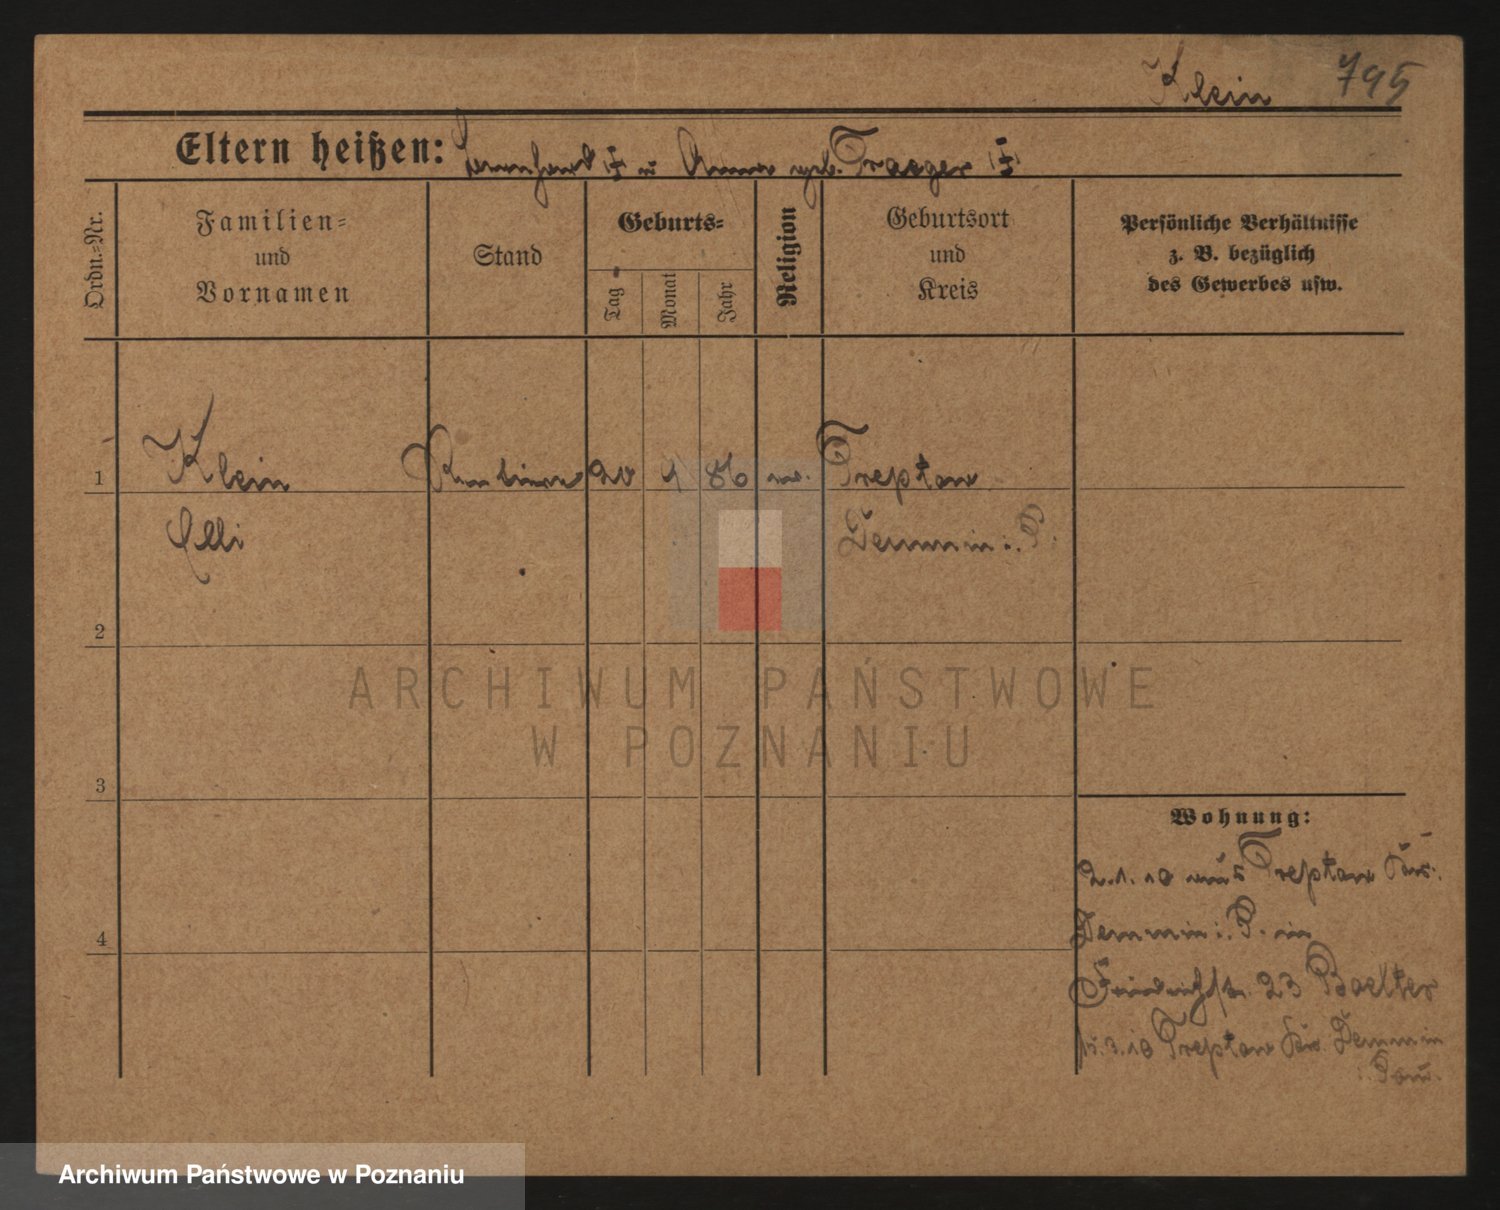 Klein 795
Eltern heißen: u Anna geb. Traeger
Ordn.=Nr.
Familien=
und
Vornamen
Stand
Geburts=
Tag
Monat
Jahr
Religion
Geburtsort
und
Kreis
Persönliche Verhältnisse
z. B. bezüglich
des Gewerbes usw.
1 Klein 20 1 86 Treptow
Elli Demmin i. P.
2
3
4
Wohnung:
2.1.10 aus Treptow Krs.
Demmin i. P. in
Friedrichstr. 23 Boelter
.3.10 Treptow Krs. Demmin
i. Pom.
ARCHIWUM PAŃSTWOWE
W POZNANIU
Archiwum Państwowe w Poznaniu